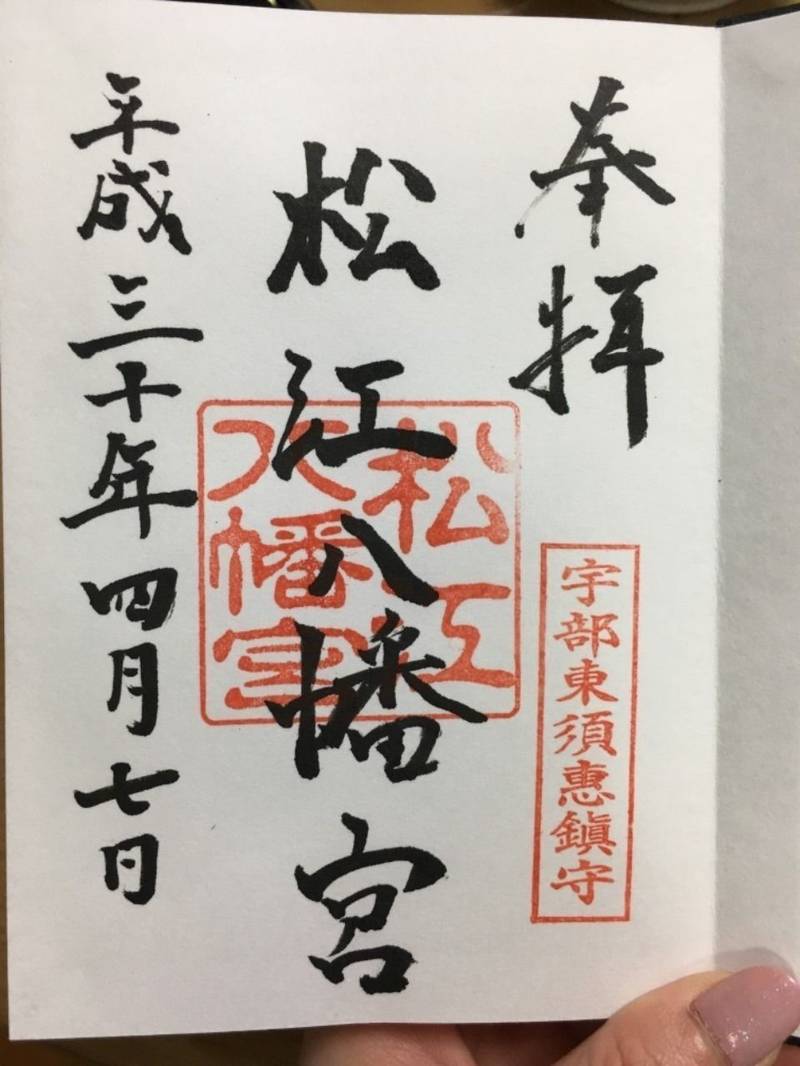 奉拝
宇部東須惠鎮守
松江八幡宮
松江
八幡宮
平成三十年四月七日